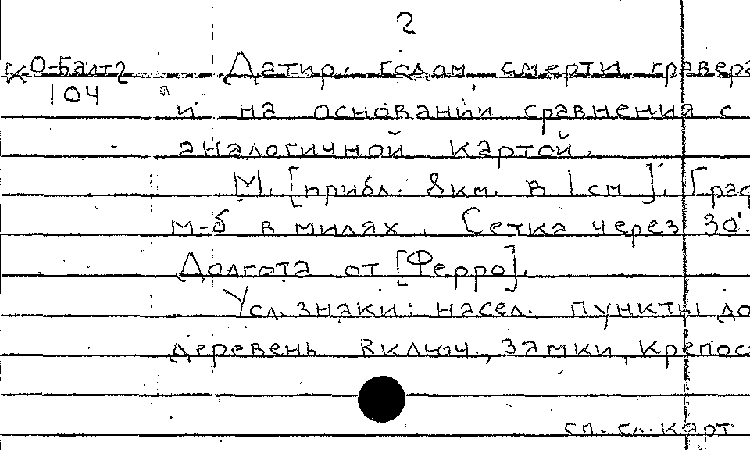 2
К О-Балт 2 Датир. годом смерти гравера
104 и на основании сравнения с
аналогичной картой.
М. [прибл. 8км. в 1 см]. Граф
м-б в милях. Сетка через 30'.
Долгота от [Ферро].
Усл. знаки: насел. пункты до
деревень включ., замки, крепос
сл. сл. карт